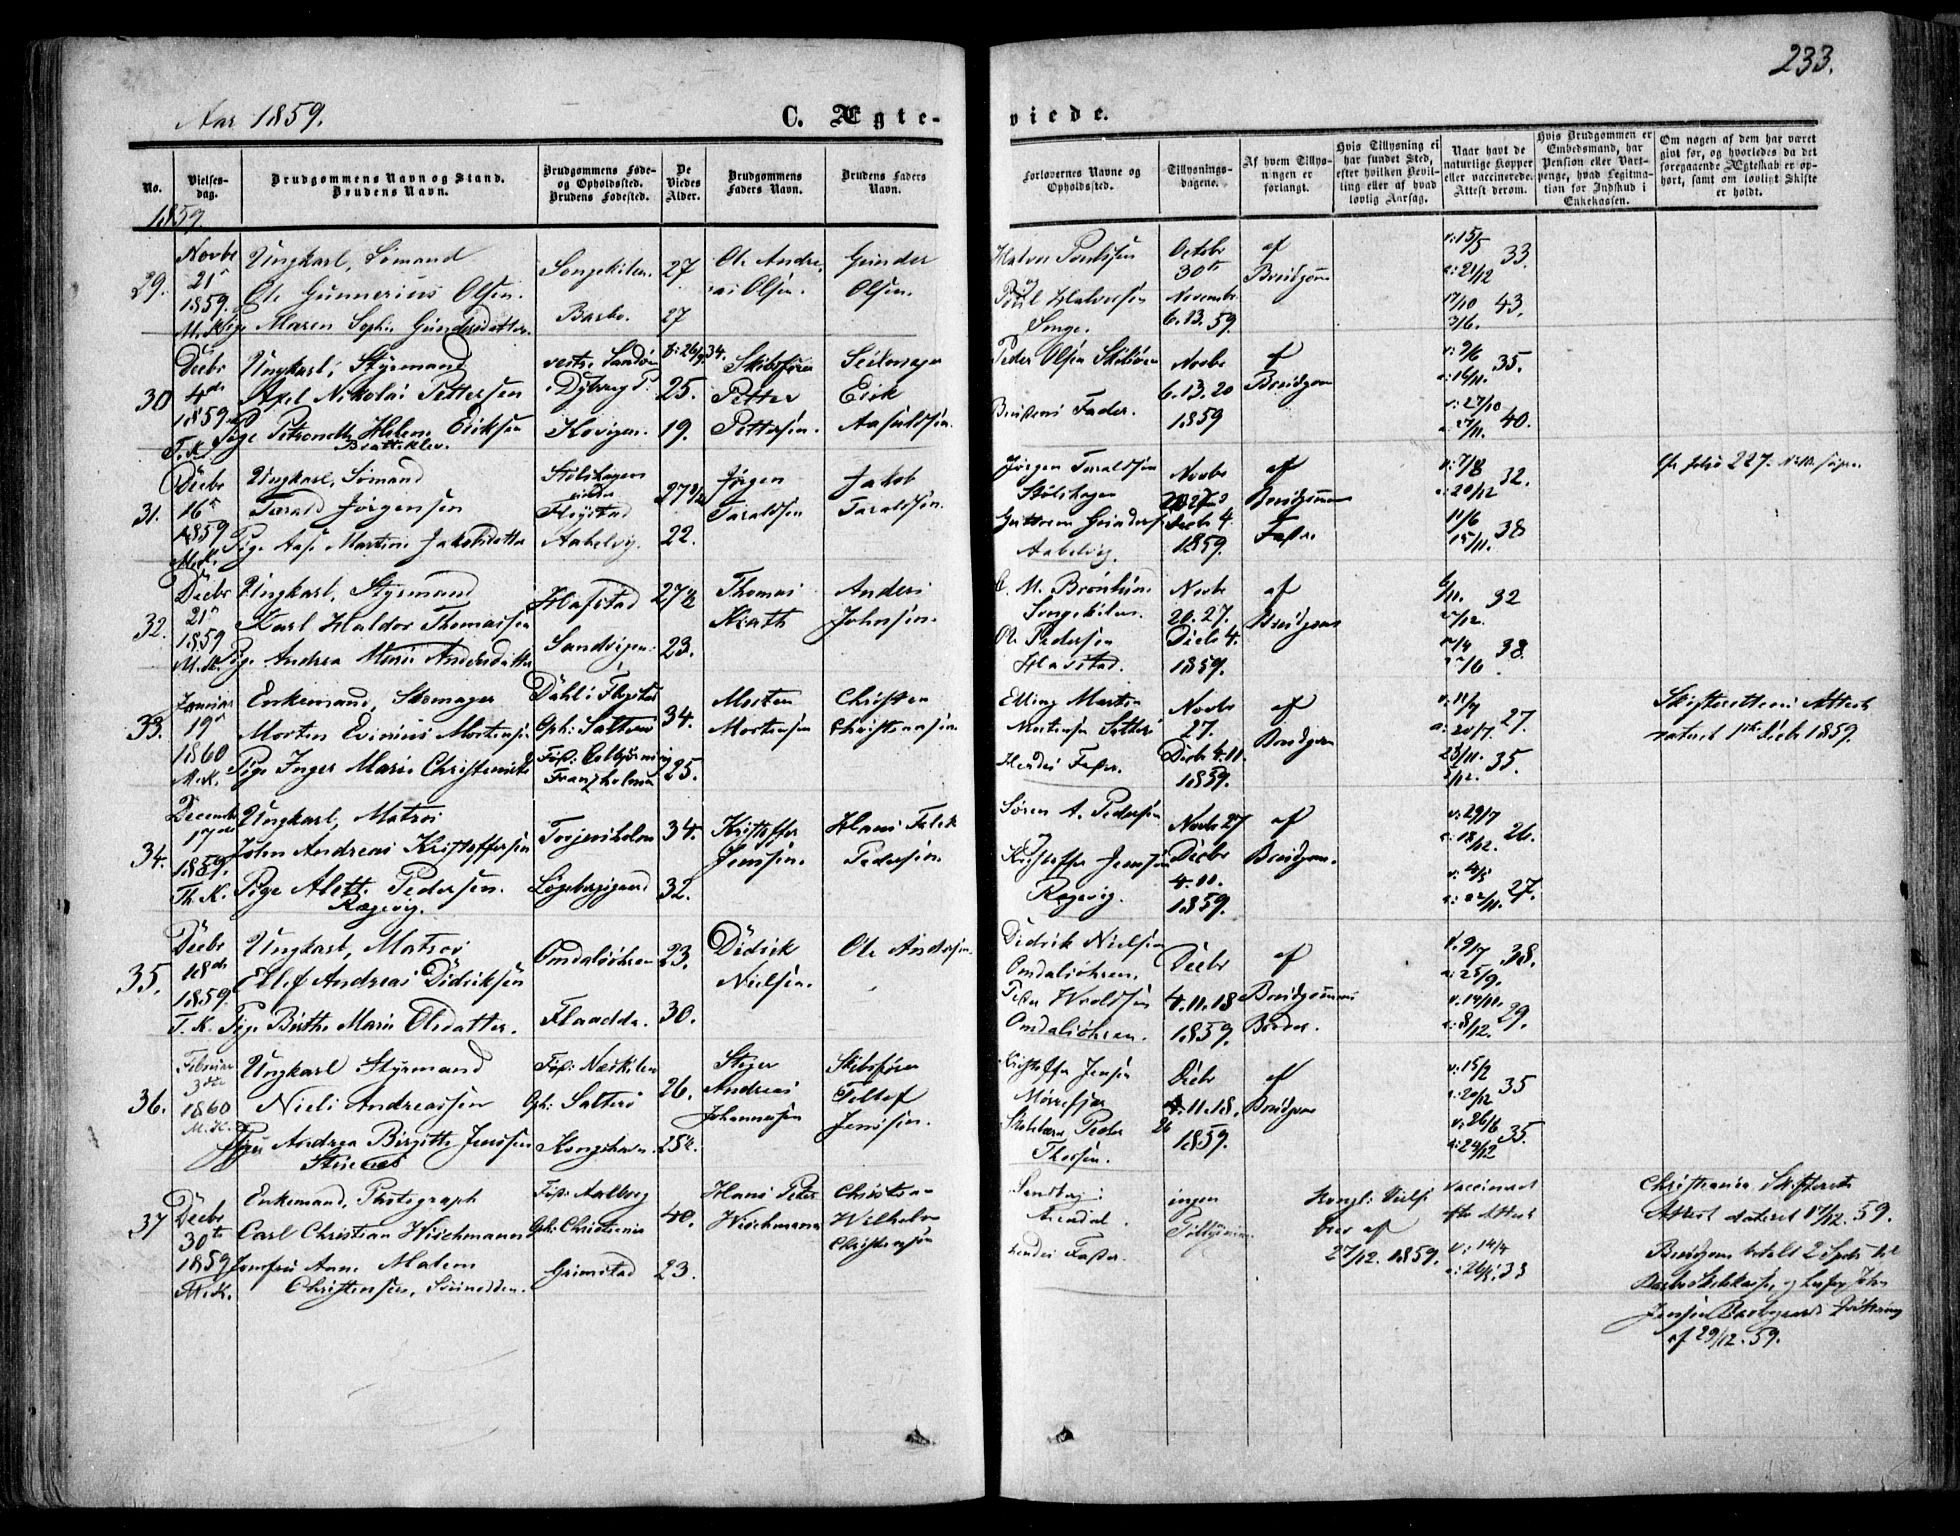 233.
Aar 1859.
C. Ægte-
viede.
No.
Vielses-
dag.
Brudgommens Navn og Stand.
Brudens Navn.
Brudgommens Føde-
og Opholdssted.
Brudens Fødested.
De
Viedes
Alder.
Brudgommens
Faders Navn.
Brudens Faders
Navn.
Forlovernes Navne og
Opholdssted.
Tillysnings-
dagene.
Af hvem Tillys-
ningen er
forlangt.
Hvis Tillysning ei
har fundet Sted,
efter hvilken Bevil-
ling eller af hvad
lovlig Aarsag.
Naar havt de
naturlige Kopper
eller vaccinerede.
Attest derom.
Hvis Brudgommen er
Embedsmand, har
Pension eller Vart-
penge, hvad Legitima-
tion for Indskud i
Enkekassen.
Om nogen af dem har været
givt før, og hvorledes da det
foregaaende Ægteskab er op-
hørt, samt om lovligt Skifte
er holdt.
1859.
29.
Novbr
21
1859.
M.K.
Ungkarl, Sømand
Ole Gunnerius Olsen.
Pige Maren Sophie Gundersdatter.
Songekilen.
Barbo.
27
27
Ole Andre-
as Olsen.
Gunder
Olsen.
Halvor Poulsen
Poul Halvorsen
Songe.
Octobr
30te
Novembr
6. 13. 59
af
Brudgom
v: 15/5
a: 21/12 33.
17/10
3/6. 43.
30
Decbr
4de
1859
T.K.
Ungkarl, Styrmand
Axel Nikolai Pettersen
Pige Petronelle Helene Eriksen
Bratteklev.
vestr. Sandøen
i Dybvag P:
Kovigen.
f: 26/9 34.
25.
19.
Skibsfører
Petter
Pettersen
Seilmager
Erik
Aasuldsen.
Peder Olsen
Brudens Fader.
Novbr
6. 13. 20
1859
af
Brudgom
v: 9/6
a: 16/11. 35.
v: 27/10
27/11. 40.
31.
Decbr
16
1859
M.K.
Ungkarl, Sømand
Tarald Jørgensen
Pige Aase Martine Jakobsdatter
Stølshagen
Fløystad
Aabelvig.
27
22.
Jørgen
Taraldsen
Jakob
Taraldsen.
Jørgen Taraldsen
Stølshagen
Guttorm Gunders
Aabelvig.
Novbr
20 27
Decbr 4.
1859.
af
Brudgommens
Fader.
v: 7/8
a: 20/12 32.
11/6
15/11. 38
cfr folio 227.
32.
Decbr
21
1859
M.K.
Ungkarl, Styrmand
Karl Haldor Thomassen
Pige Andrea Marie Andersdatter
Hafstad
Sandvigen
27½
23.
Thomas
Kiath
Anders
Johnsen.
Songekilen
Ole Pedersen
Hafstad.
Novbr
20. 27.
Decbr 4.
1859.
af
Brudgom
32
38.
33.
Januar
19
1860
M.K.
Enkemand, Skomager
Morten Evinius Mortensen
Pige Inger Marie Christensdtr
Dahl i Fløistad
Oph: Salterø
Franzholmen
34.
25.
Morten
Mortensen
Christen
Christensen.
Elling Martin
Mortensen Salterø
Hendes Fader.
Novbr
27.
Decbr 4. 11.
1859.
af
Brudgom
v: 11/7
a: 20/7 27.
23/11.
5/12. 35.
Skifterettens Attest
dateret 1ste Decbr 1859.
34.
Decembr
17de
1859.
Th. K.
Ungkarl, Matros
John Andreas Kristoffersen
Pige Alett. Pedersen.
Rægevig.
Torjusholmen
34.
32.
Kristoffer
Jenssen.
Hans Falck
Pedersen.
Søren A. Pedersen
Kristoffer Jenssen
Rægevig.
Novbr 27
Decbr
4. 11.
1859.
af
Brudgom.
v: 29/7
a: 18/12. 26.
a: 22/11. 27.
35.
Decbr
18de
1859.
T. K.
Ungkarl, Matros
Ellef Andreas Didriksen
Pige Birthe Marie Olsdatter.
Omdalsøhren
Flaadde.
23.
30.
Didrik
Nielsen.
Ole Andersen.
Didrik Nielsen
Omdalsøhren.
Peder Wroldsen
Omdalsøhren.
Decbr
4. 11. 18
1859.
af
Brudgommens
Broder.
v. 9/7
a: 25/9. 38.
v. 14/11.
a: 8/12. 29.
36.
Februar
3die
1860
M.K.
Ungkarl Styrmand
Niels Andreassen
Pige Andrea Birgitte Jenssen
Fød: Næskilen
Oph: Salterø
Kongshavn.
26.
25½.
Andreas
Johannesen
Skibsfører
Tellef
Jenssen.
Kristoffer Jensen
Mørrefjær
Peder
Thorsen.
Decbr
4. 11. 18.
26
1859.
af
Brudgom
v: 15/2
a: 20/12 35
v: 26/6
a: 24/12 35.
37
Decbr
30te
1859
M.K.
Enkemand, Photograph
Carl Christian Wischmann
Jomfru Anne Malene
Christensen,
Fød: Aalborg
Oph: Christiania
Grimstad
40.
23.
Hans Peter
Wischmann
Christian
Wilhelm
Christensen
Sandberg i
Arendal.
hendes Fader.
ingen
Tillysning
Kongl: Vielse
brev af
27/12. 1859.
vaccineret
efter Attest
v: 14/4
a: 26/8. 33
Christiania Skifterets
Attest dateret 17/12. 59.
Brudgom betalt 2 Spd: til
Barbo
Jensen
af 29/12. 59.